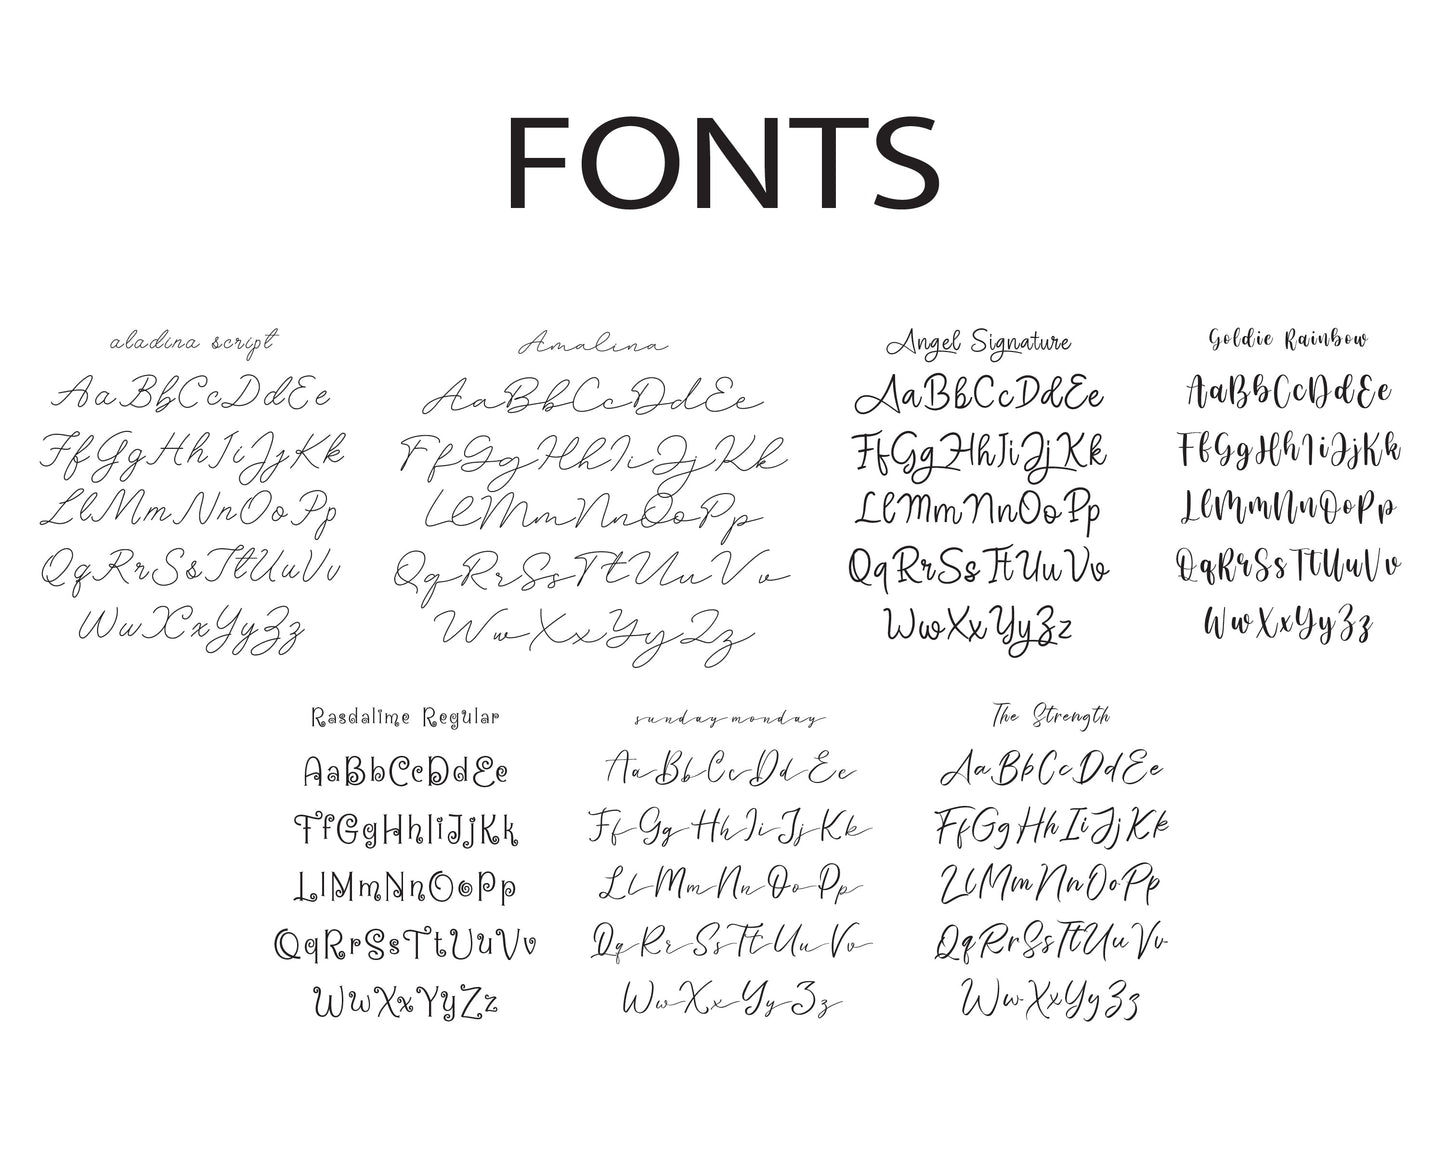 FONTS
aladina script
AaBbCcDdEe
FfGgHhIiJjKk
LlMmNnOoPp
QqRrSsTtUuVv
WwXxYyZz
Amalina
AaBbCcDdEe
FfGgHhIiJjKk
LlMmNnOoPp
QqRrSsTtUuVv
WwXxYyZz
Angel Signature
AaBbCcDdEe
FfGgHhIiJjKk
LlMmNnOoPp
QqRrSsTtUuVv
WwXxYyZz
Goldie Rainbow
AaBbCcDdEe
FfGgHhIiJjKk
LlMmNnOoPp
QqRrSsTtUuVv
WwXxYyZz
Rasdalime Regular
AaBbCcDdEe
FfGgHhIiJjKk
LlMmNnOoPp
QqRrSsTtUuVv
WwXxYyZz
sunday monday
AaBbCcDdEe
FfGgHhIiJjKk
LlMmNnOoPp
QqRrSsTtUuVv
WwXxYyZz
The Strength
AaBbCcDdEe
FfGgHhIiJjKk
LlMmNnOoPp
QqRrSsTtUuVv
WwXxYyZz